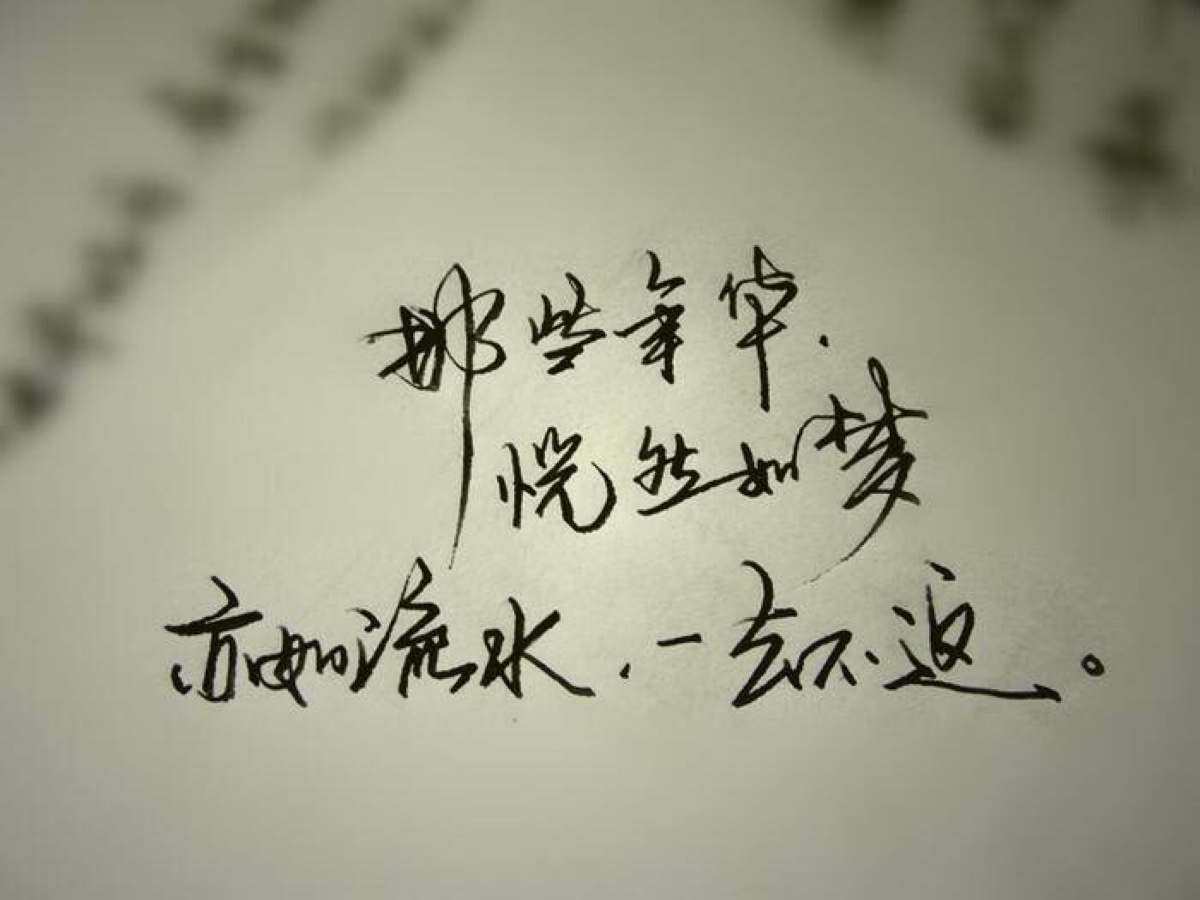 那些年华.
恍然如梦
亦如流水.一去不返。